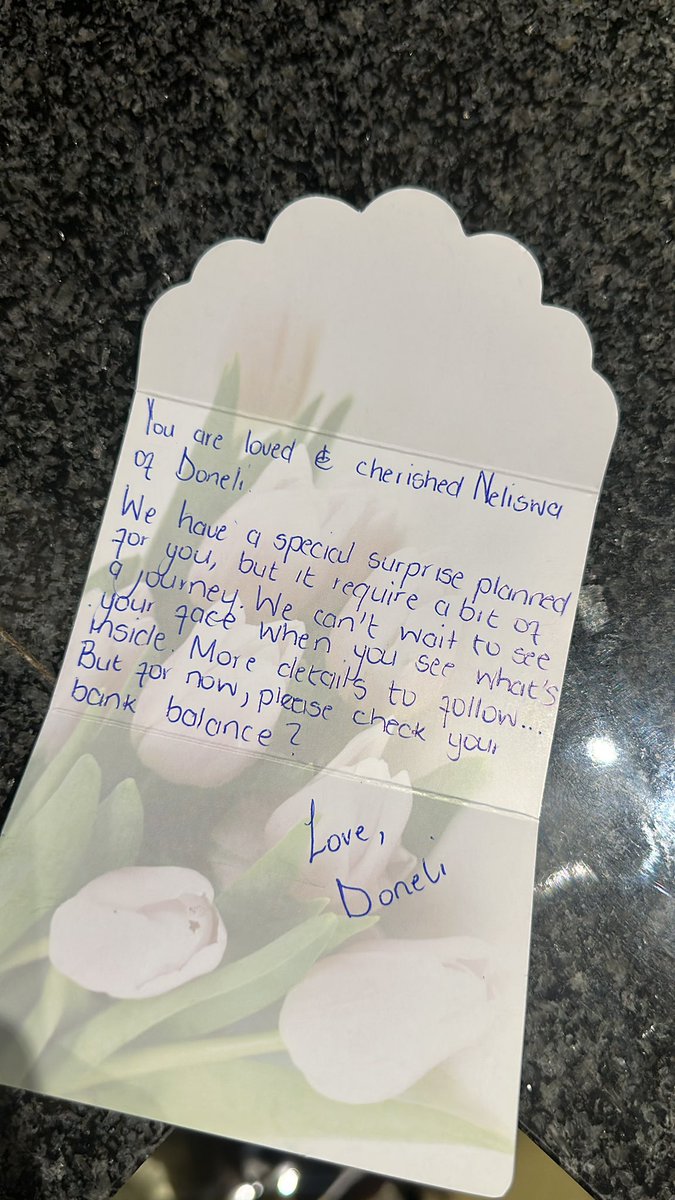 You are loved & cherished Neliswa
of Doneli
We have a special surprise planned
for you, but it require a bit of
a journey. We can't wait to see
your face when you see what's
inside. More details to follow...
But for now, please check your
bank balance?
Love,
Doneli